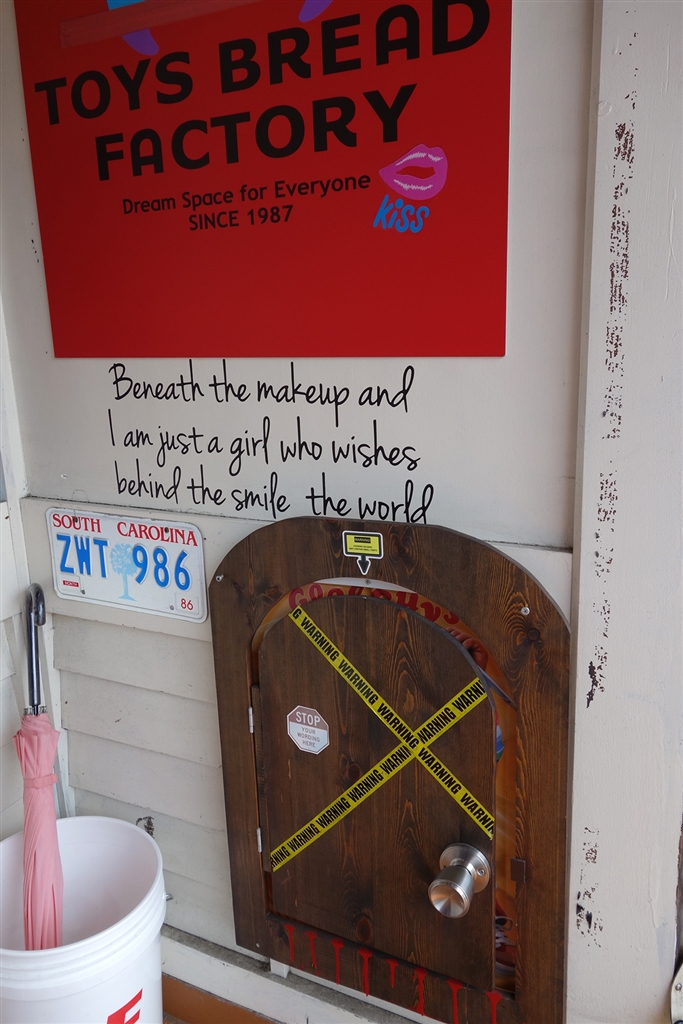 TOYS BREAD
FACTORY
Dream Space for Everyone
SINCE 1987
kiss
Beneath the makeup and
I am just a girl who wishes
behind the smile the world
SOUTH CAROLINA
ZWT 986
86
G WARNING WARNING WARNING WARNING WARNING WARNIN
RNING WARNING WARNING WARNING WARNING WARNI
STOP
YOUR
WORDING
HERE